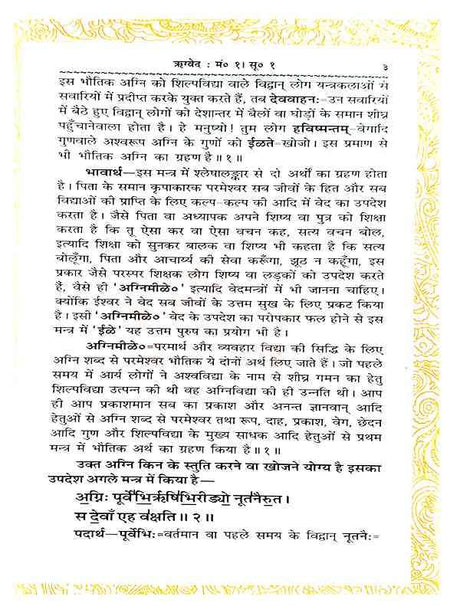 ऋग्वेद : मं० १। सू० १ ३
इस भौतिक अग्नि को शिल्पविद्या वाले विद्वान् लोग यन्त्रकलाओं से
सवारियों में प्रदीप्त करके युक्त करते हैं, तब देववाहनः=उन सवारियों
में बैठे हुए विद्वान् लोगों को देशान्तर में बैलों वा घोड़ों के समान शीघ्र
पहुँचानेवाला होता है। हे मनुष्यो! तुम लोग हविष्मन्तम्-वेगादि
गुणवाले अश्वरूप अग्नि के गुणों को ईळते-खोजो। इस प्रमाण से
भी भौतिक अग्नि का ग्रहण है॥१॥
भावार्थ—इस मन्त्र में श्लेषालङ्कार से दो अर्थों का ग्रहण होता
है। पिता के समान कृपाकारक परमेश्वर सब जीवों के हित और सब
विद्याओं की प्राप्ति के लिए कल्प-कल्प की आदि में वेद का उपदेश
करता है। जैसे पिता वा अध्यापक अपने शिष्य वा पुत्र को शिक्षा
करता है कि तू ऐसा कर वा ऐसा वचन कह, सत्य वचन बोल,
इत्यादि शिक्षा को सुनकर बालक वा शिष्य भी कहता है कि सत्य
बोलूँगा, पिता और आचार्य्य की सेवा करूँगा, झूठ न कहूँगा, इस
प्रकार जैसे परस्पर शिक्षक लोग शिष्य वा लड़कों को उपदेश करते
हैं, वैसे ही 'अग्निमीळे०' इत्यादि वेदमन्त्रों में भी जानना चाहिए।
क्योंकि ईश्वर ने वेद सब जीवों के उत्तम सुख के लिए प्रकट किया
है। इसी 'अग्निमीळे०' वेद के उपदेश का परोपकार फल होने से इस
मन्त्र में 'ईळे' यह उत्तम पुरुष का प्रयोग भी है।
अग्निमीळे०=परमार्थ और व्यवहार विद्या की सिद्धि के लिए
अग्नि शब्द से परमेश्वर भौतिक ये दोनों अर्थ लिए जाते हैं। जो पहले
समय में आर्य लोगों ने अश्वविद्या के नाम से शीघ्र गमन का हेतु
शिल्पविद्या उत्पन्न की थी वह अग्निविद्या की ही उन्नति थी। आप
ही आप प्रकाशमान सब का प्रकाश और अनन्त ज्ञानवान् आदि
हेतुओं से अग्नि शब्द से परमेश्वर तथा रूप, दाह, प्रकाश, वेग, छेदन
आदि गुण और शिल्पविद्या के मुख्य साधक आदि हेतुओं से प्रथम
मन्त्र में भौतिक अर्थ का ग्रहण किया है॥१॥
उक्त अग्नि किन के स्तुति करने वा खोजने योग्य है इसका
उपदेश अगले मन्त्र में किया है—
अ॒ग्निः पूर्वे॑भि॒र्ऋषि॑भि॒रीड्यो॒ नूत॑नैरु॒त।
स दे॒वाँ एह व॑क्षति॥२॥
पदार्थ—पूर्वेभिः=वर्तमान वा पहले समय के विद्वान् नूतनैः=